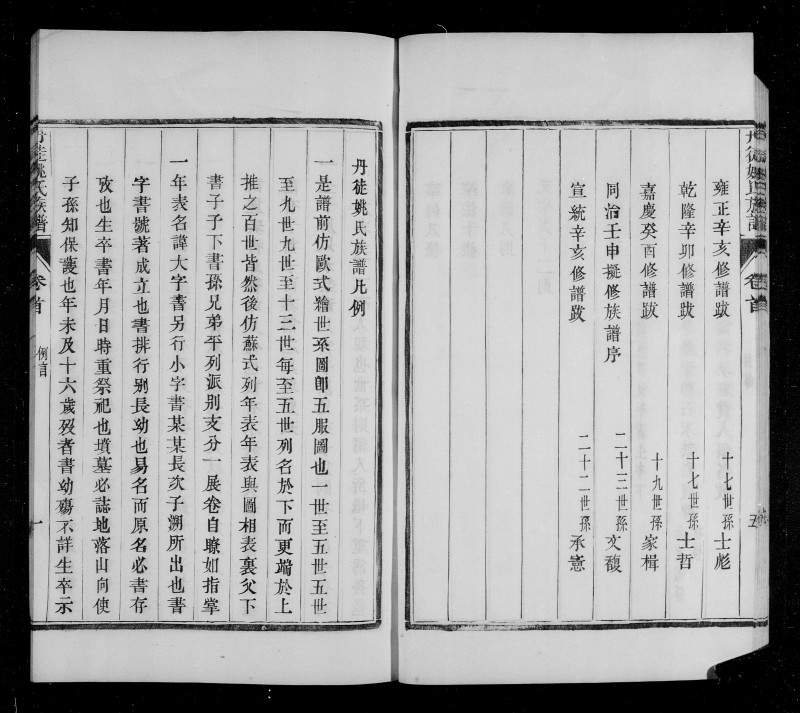 丹徒姚氏族譜
卷首
五
雍正辛亥修譜跋　十七世孫士彪
乾隆辛卯修譜跋　十七世孫士哲
嘉慶癸酉修譜跋　十九世孫家楫
同治壬申擬修族譜序　二十三世孫文馥
宣統辛亥修譜跋　二十二世孫承憲
丹徒姚氏族譜凡例
一是譜前仿歐式繪世系圖卽五服圖也一世至五世五世
至九世九世至十三世每至五世列名於下而更端於上
推之百世皆然後仿蘇式列年表年表與圖相表裏父下
書子子下書孫兄弟平列派別支分一展卷自瞭如指掌
一年表名諱大字書另行小字書某某長次子溯所出也書
字書號著成立也書排行别長幼也易名而原名必書存
攷也生卒書年月日時重祭祀也墳墓必誌地落山向使
子孫知保護也年未及十六歲歿者書幼殤不詳生卒示
丹徒姚氏族譜
卷首
例言
一